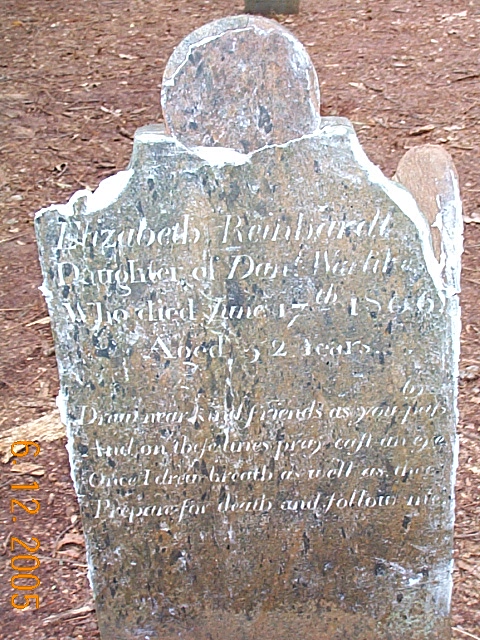 Elizabeth Reinhardt
Daughter of Danl. Warlik
Who died June 17th
Aged 52 Years
by
Draw near kind friends as you pass
And on these lines pray cast an eye
Once I drew breath as well as thee
Prepare for death and follow me.
6.12.2005